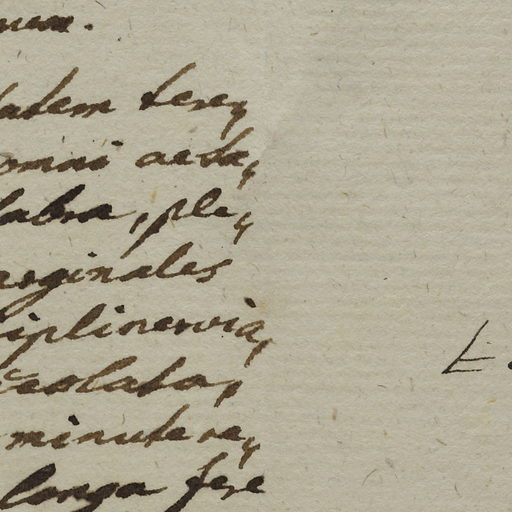 num.
tatem tere,
omni aeta,
labra, ple,
arginales
iplinervia,
ceolata,
minute re,
longa fere
t.